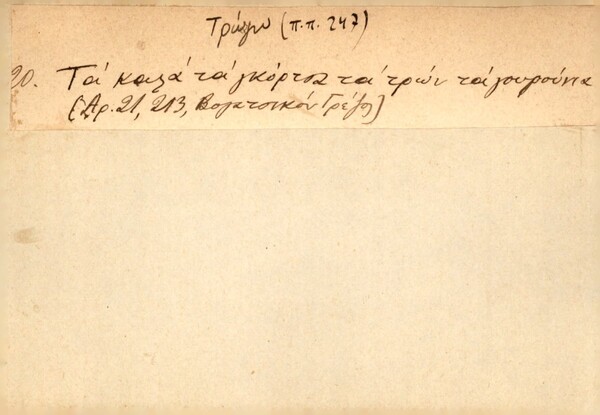 Τρώγω (π.π. 247)
20. Τά καλά τά γκόρτσα τά τρών τά γουρούνια
(Αρ. 21, 213, Βογατσικόν Γρέβ.)